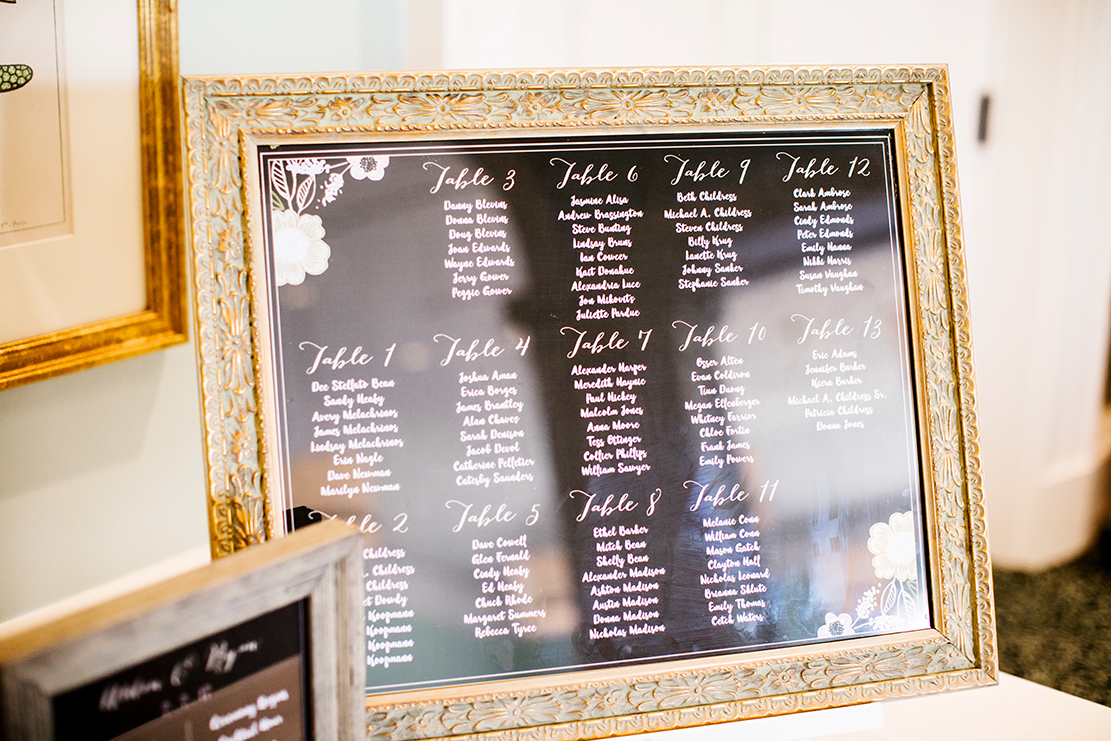 Table 1
Dee Stellato Bean
Sandy Heaby
Avery Melachrinos
James Melachrinos
Lindsay Melachrinos
Erin Nagle
Dave Newman
Marilyn Newman
Table 2
Childress
Childress
Childress
Dowdy
Koopmann
Koopmann
Koopmann
Table 3
Danny Blevins
Donna Blevins
Doug Blevins
Joan Edwards
Wayne Edwards
Jerry Gower
Peggie Gower
Table 4
Joshua Aman
Erica Borges
James Brantley
Alan Chavez
Sarah Denison
Jacob Devol
Catherine Pelletier
Catesby Saunders
Table 5
Dave Cowell
Glen Fernald
Cindy Heaby
Ed Heaby
Chuck Rhode
Margaret Summers
Rebecca Tyree
Table 6
Jasmine Alisa
Andrew Brassington
Steve Bunting
Lindsay Bruns
Ian Cowcer
Kait Donahue
Alexandria Luce
Jon Mikovits
Juliette Pardue
Table 7
Alexander Harper
Meredith Haynie
Paul Hickey
Malcolm Jones
Anna Moore
Tess Ottinger
Collier Phillips
William Sawyer
Table 8
Ethel Barker
Mitch Bean
Shelly Bean
Alexander Madison
Ashton Madison
Austin Madison
Donna Madison
Nicholas Madison
Table 9
Beth Childress
Michael A. Childress
Steven Childress
Billy Krug
Lanette Krug
Johnny Sanker
Stephanie Sanker
Table 10
Ozzer Alten
Evan Coldiron
Tien Duong
Megan Elfenberger
Whitney Farrior
Chloe Fortin
Frank James
Emily Powers
Table 11
Melanie Conn
William Conn
Mason Gatch
Clayton Hall
Nicholas Leonard
Brianna Shlute
Emily Thomas
Cetch Waters
Table 12
Clark Ambrose
Sarah Ambrose
Cindy Edmonds
Peter Edmonds
Emily Hanna
Nikki Harris
Susan Vaughan
Timothy Vaughan
Table 13
Eric Adams
Jennifer Barker
Kiera Barker
Michael A. Childress Sr.
Patricia Childress
Donna Jones